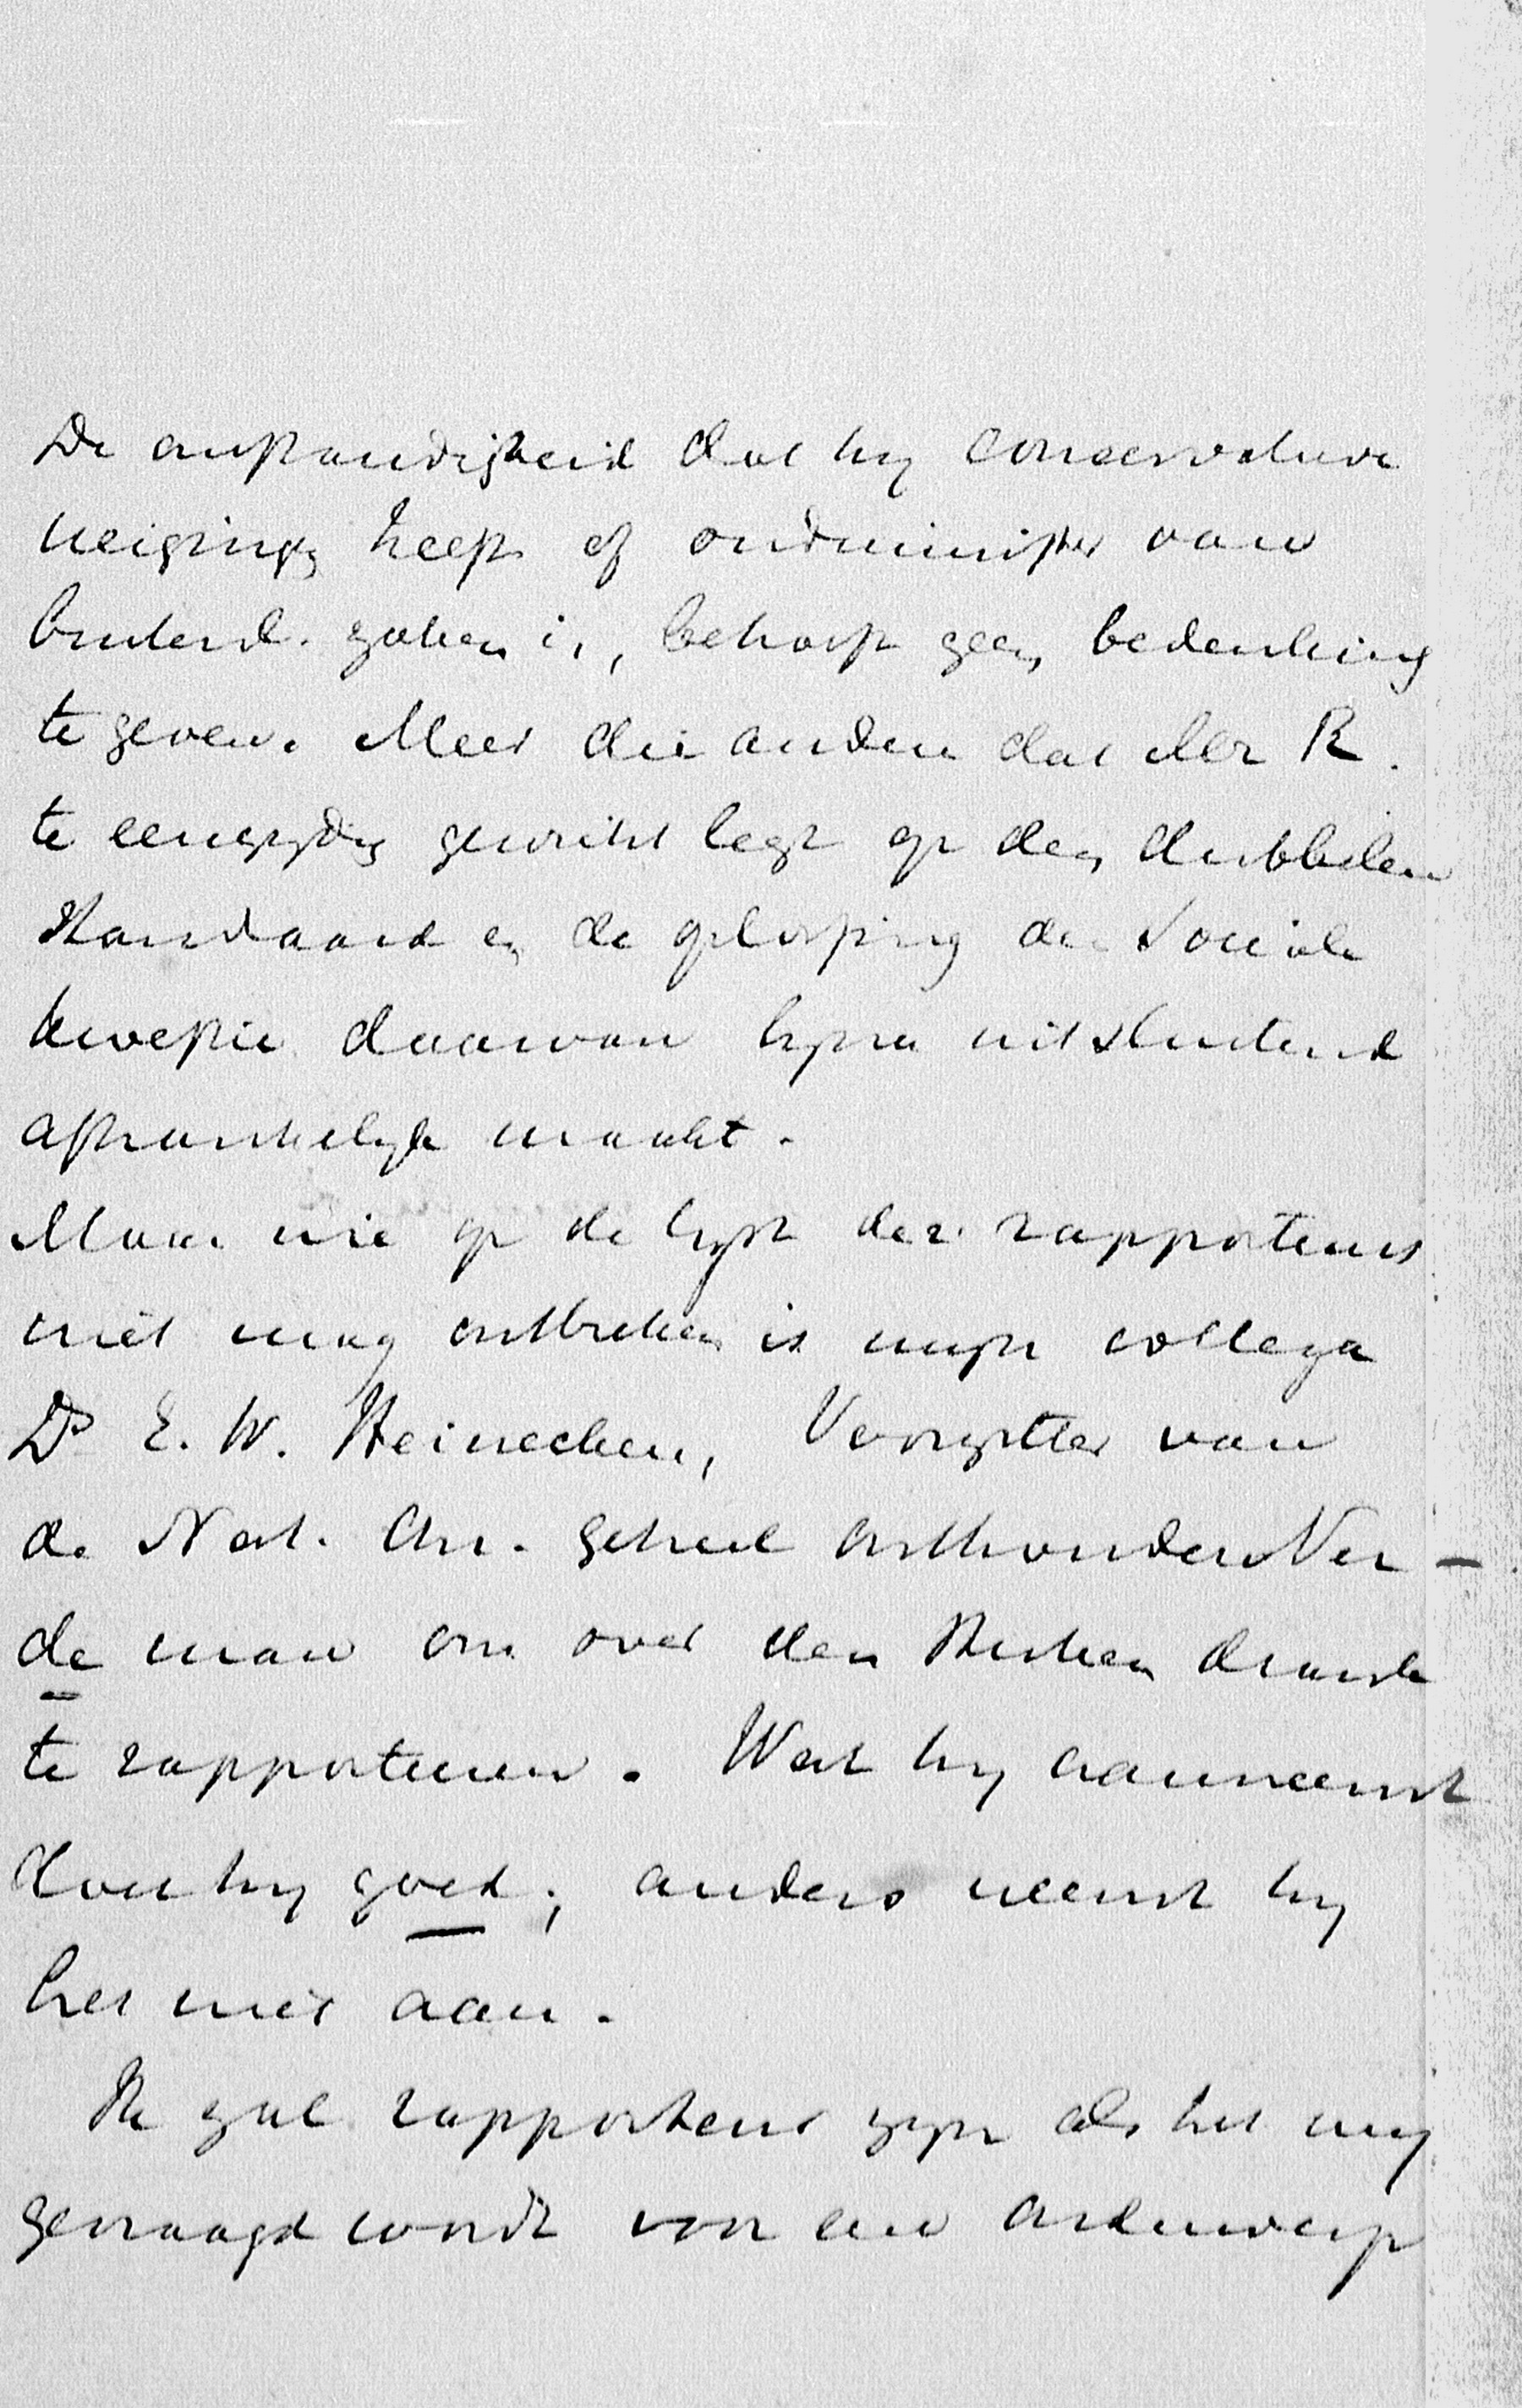 De omstandigheid dat hy conservatieve
neigingen heeft of oudminister van
buitenl. zaken is, behoeft geen bedenking
te geven. Meer die andere dat Mr R.
te eenzydig gewicht legt op den dubbelen
standaard en de oplossing der sociale
kwestie daarvan byna uitsluitend
afhankelyk maakt.
Maar wie op de lyst der rapporteurs
niet mag ontbreken is myn collega
Ds E. W. Heinecken, Voorzitter van
de Nat. Chr. Geheel Onthouders Ver –
de man om over den sterken drank
te rapporteeren. Wat hy aanneemt
doet hy goed; anders neemt hy
het niet aan.
Ik zal rapporteur zyn als het my
gevraagd wordt voor een onderwerp